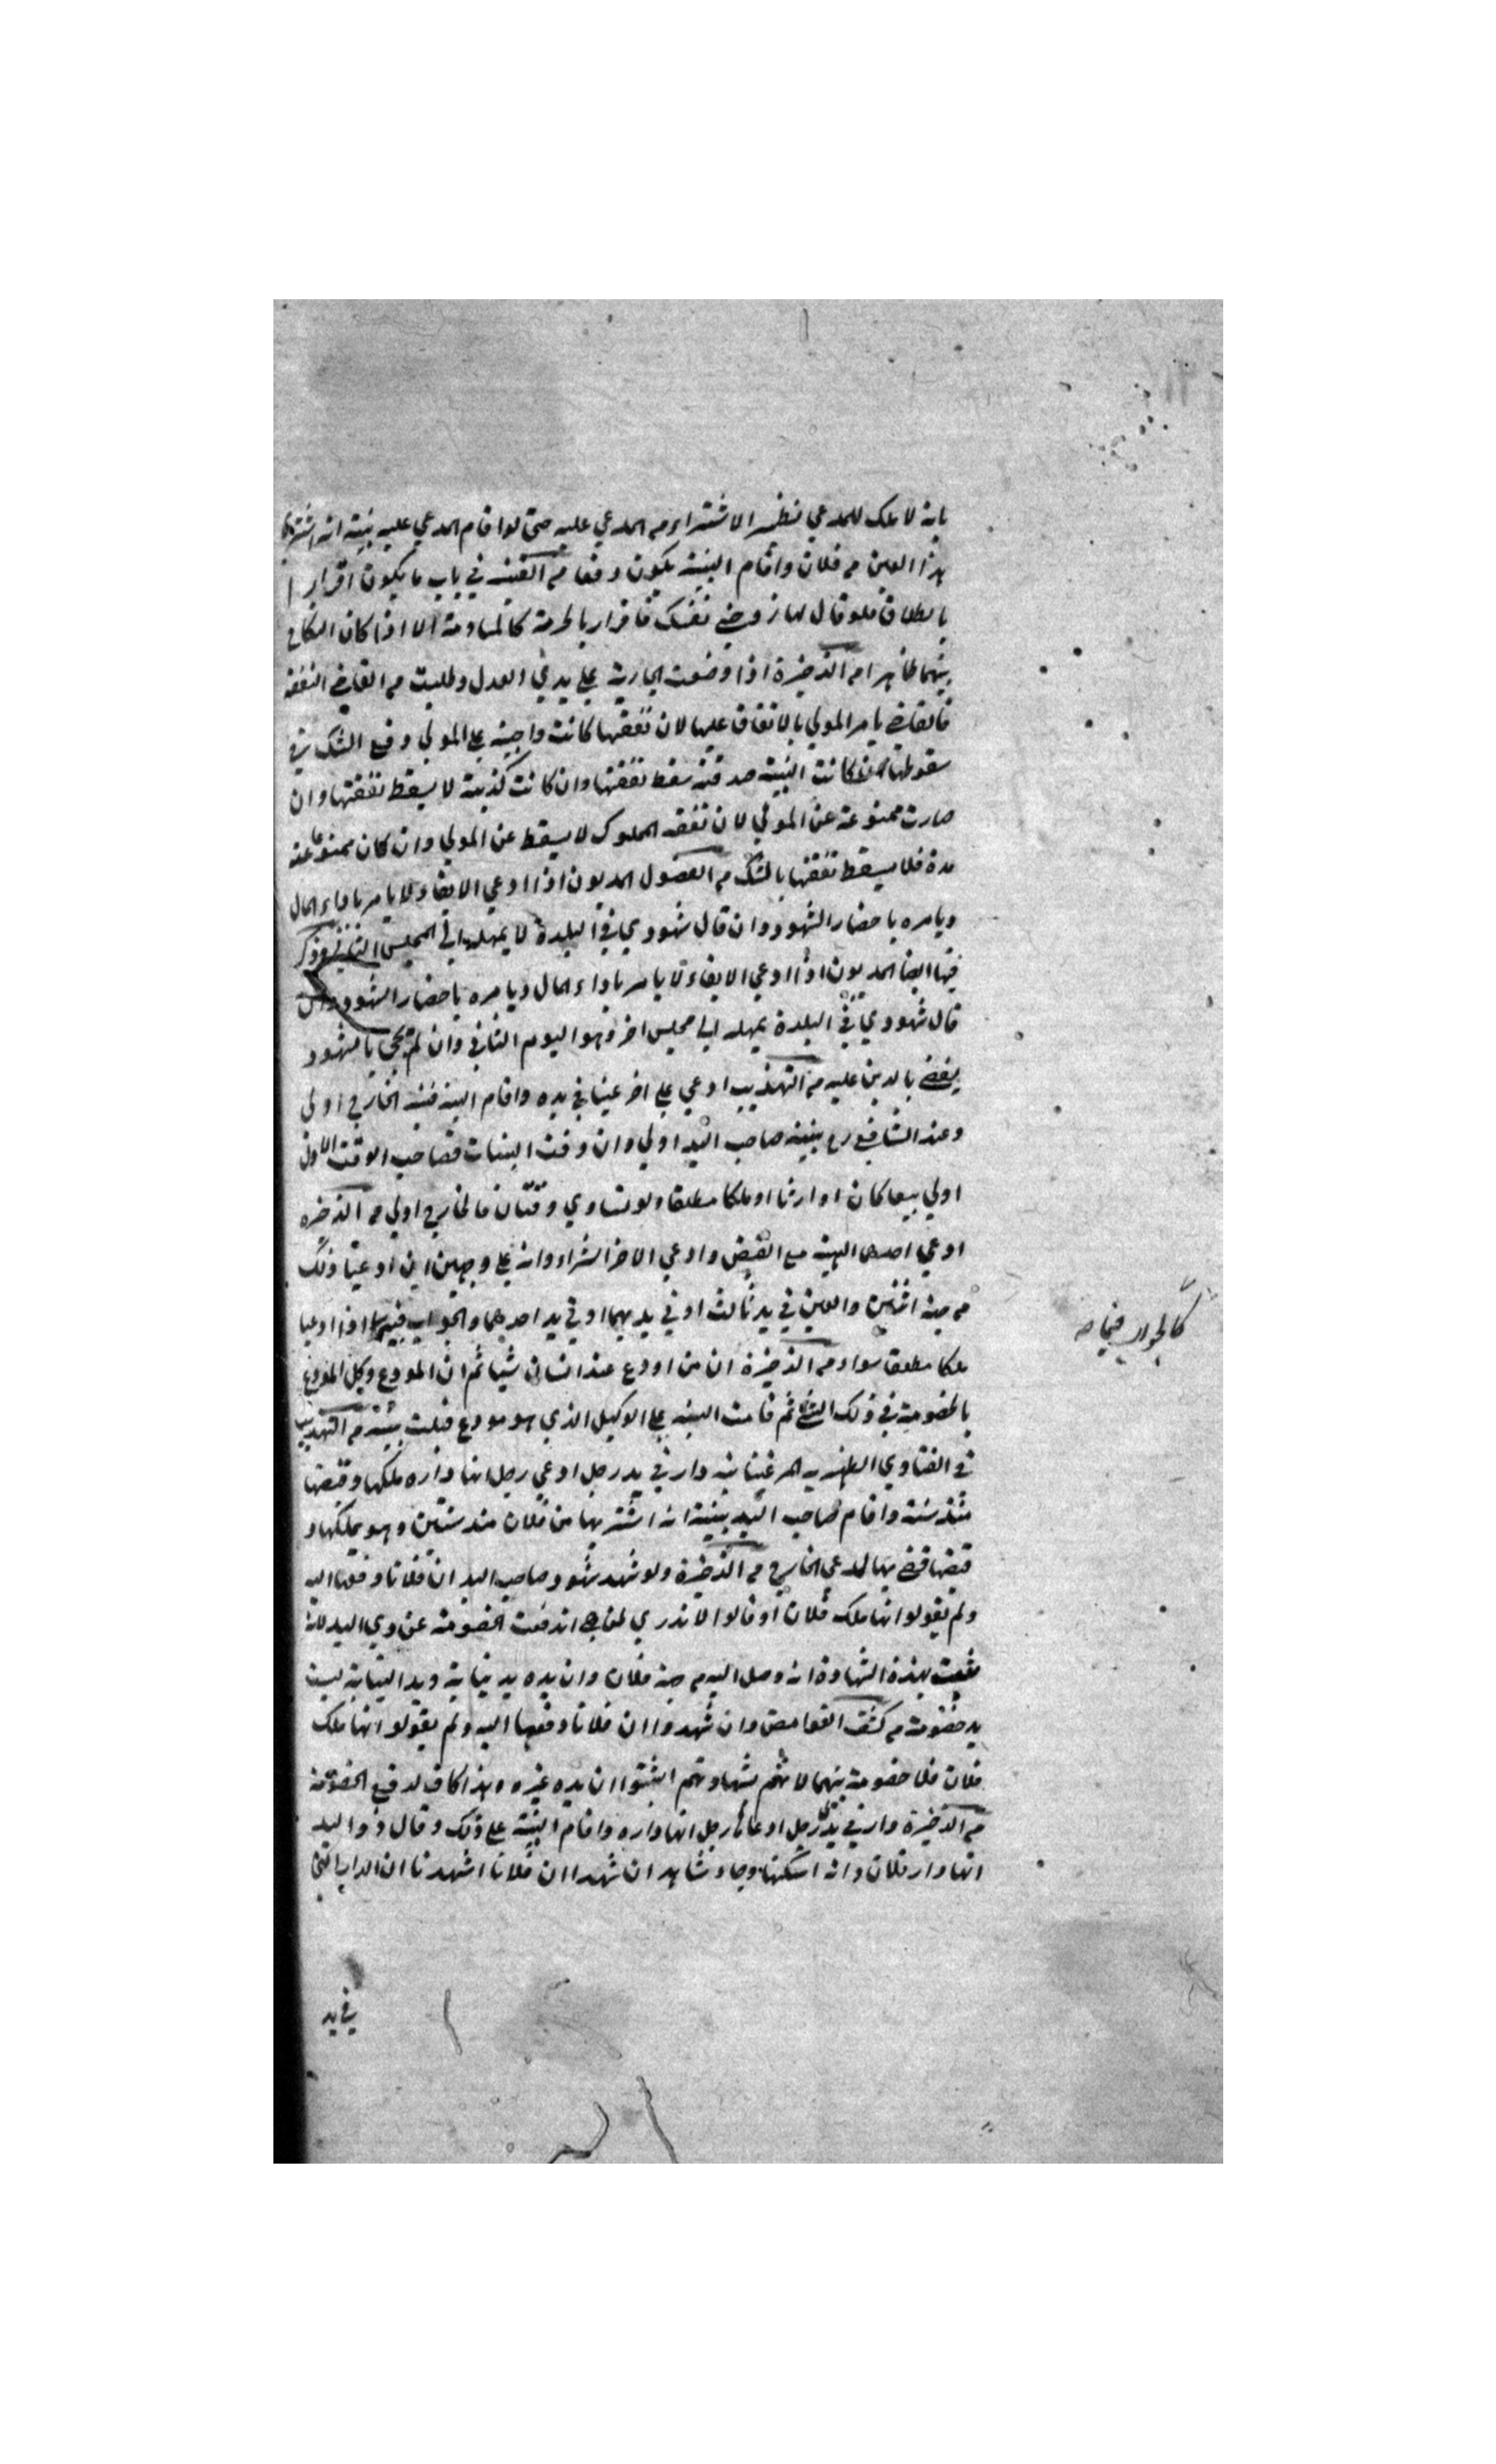 بانه لا ملك للمدعي نظير الاشتراء من المدعي عليه حتى لو اقام المدعي عليه بينة انه اشترى
هذا العين من فلان واقام البينة يكون دفعا من القنية في باب ما يكون اقرارا
بالطلاق فلو قال لها زوجني نفسك فاقرار بالحرمة كالمساومة الا اذا كان النكاح
بينهما ظاهرا من الذخيرة اذا وضعت الجارية علي يدي العدل وطلبت من القاضي النفقة
فالقاضي يامر المولي بالانفاق عليها لان نفقتها كانت واجبة علي المولي وقع الشك في
سقوطها لان كانت البينة صدقة سقط نفقتها وان كانت كذبة لا يسقط نفقتها وان
صارت ممنوعة عن المولي لان نفقه المملوك لا يسقط عن المولي وان كان ممنوعا عنه
مدة فلا يسقط نفقتها بالشك من الفصول المديون اذا ادعي الايفاء لا يامر باداء المال
ويامره باحضار الشهود وان قال شهودي في البلدة لا يمهله الي المجلس الثاني وذكر
فيها ايضا المديون اذا ادعي الايفاء لا يامر باداء المال ويامره باحضار الشهود وان
قال شهودي في البلدة يمهله الي مجلس اخر وهو اليوم الثاني وان لم يجئ بالشهود
يقضي بالدين عليه من التهذيب ادعي علي اخر عينا في يده واقام البينة فبينة الخارج اولي
وعند الشافعي رح بينة صاحب اليد اولي وان وقت البينات فصاحب الوقت الاول
اولي بيعا كان او ارثا او ملكا مطلقا ولو تساوي وقتان فالخارج اولي من الذخيره
ادعي احدهما الهبة مع القبض وادعي الاخر الشراء وانه علي وجهين ان ادعيا ذلك
من جهة اثنين والعين في يد ثالث او في يديهما او في يد احدهما والجواب فيها اذا ادعيا
كالجواب فيما صح
ملكا مطلقا سواء من الذخيرة ان من اودع عند انسان شيئا ثم ان المودع وكل المودع
بالخصومة في ذلك الشئ ثم قامت البينة علي الوكيل الذي هو مودع قبلت بينته من التهذيب
في الفتاوي الظهيرية المرغينانية دار في يد رجل ادعي رجل انها داره ملكها وقبضها
منذ سنة واقام صاحب اليد بينة انه اشتريها من فلان منذ سنتين وهو يملكها و
قبضها قضي بها للمدعي الخارج من الذخيرة ولو شهد شهود صاحب اليد ان فلانا دفعها اليه
ولم يقولوا انها ملك فلان او قالوا لا ندري لمن هي اندفعت الخصومة عن ذي اليد لانه
يثبت بهذه الشهادة انه وصل اليه من جهة فلان وان يده يد نيابة ويد النيابة ليست
يد خصومة من كشف الغوامض وان شهدوا ان فلانا دفعها اليه ولم يقولو انها ملك
فلان فلا خصومة بينهما لانهم بشهادتهم اثبتوا ان يده غيره وهذا كاف لدفع الخصومة
من الذخيرة دار في يد رجل ادعاها رجل انها داره واقام البينة علي ذلك وقال ذو اليد
انها دار فلان وانه اسكنها وجاء شاهدان شهدا ان فلانا اشهدنا ان الدار التي
في يد